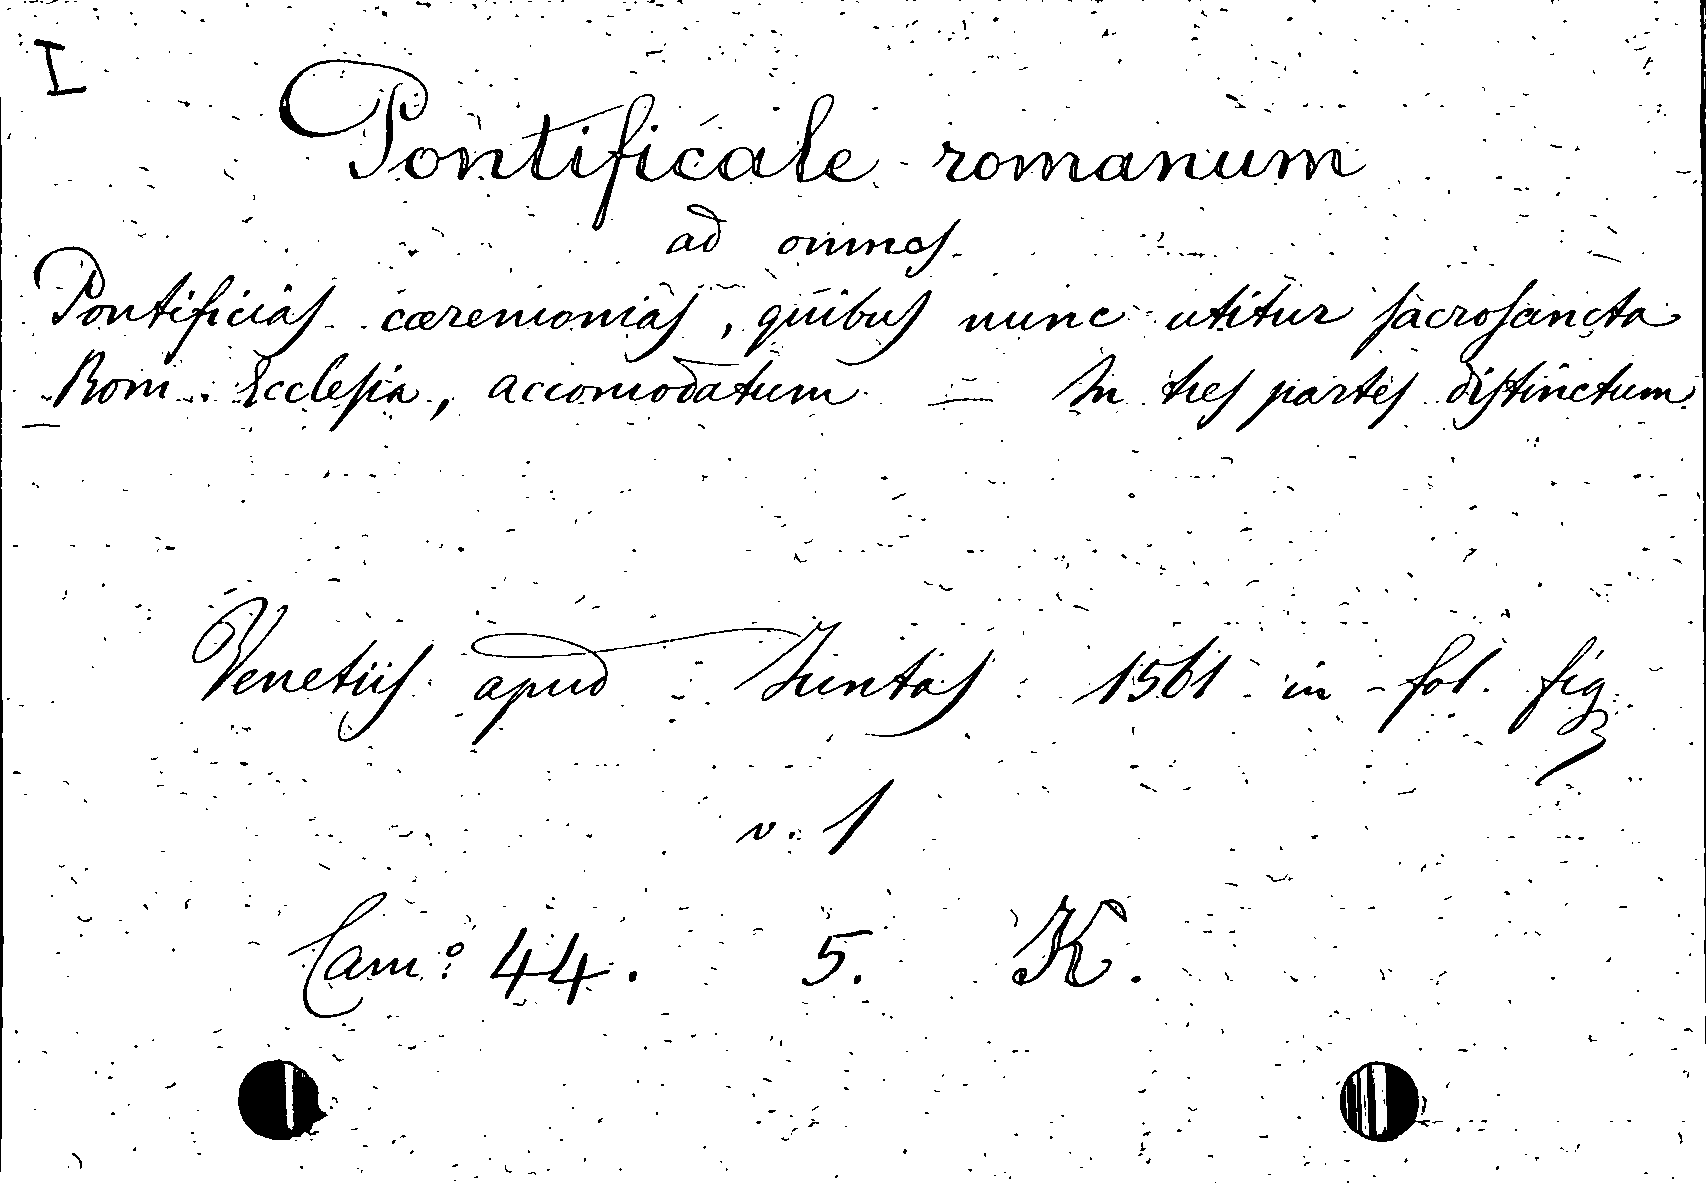 I
Pontificale romanum
ad omnes
Pontificias cæremonias, quibus nunc utitur sacrosancta
Rom. Ecclesia, accomodatum = In tres partes distinctum
Venetiis apud Juntas 1561 in-fol. fig.
v. 1
Cam: 44. 5. K.